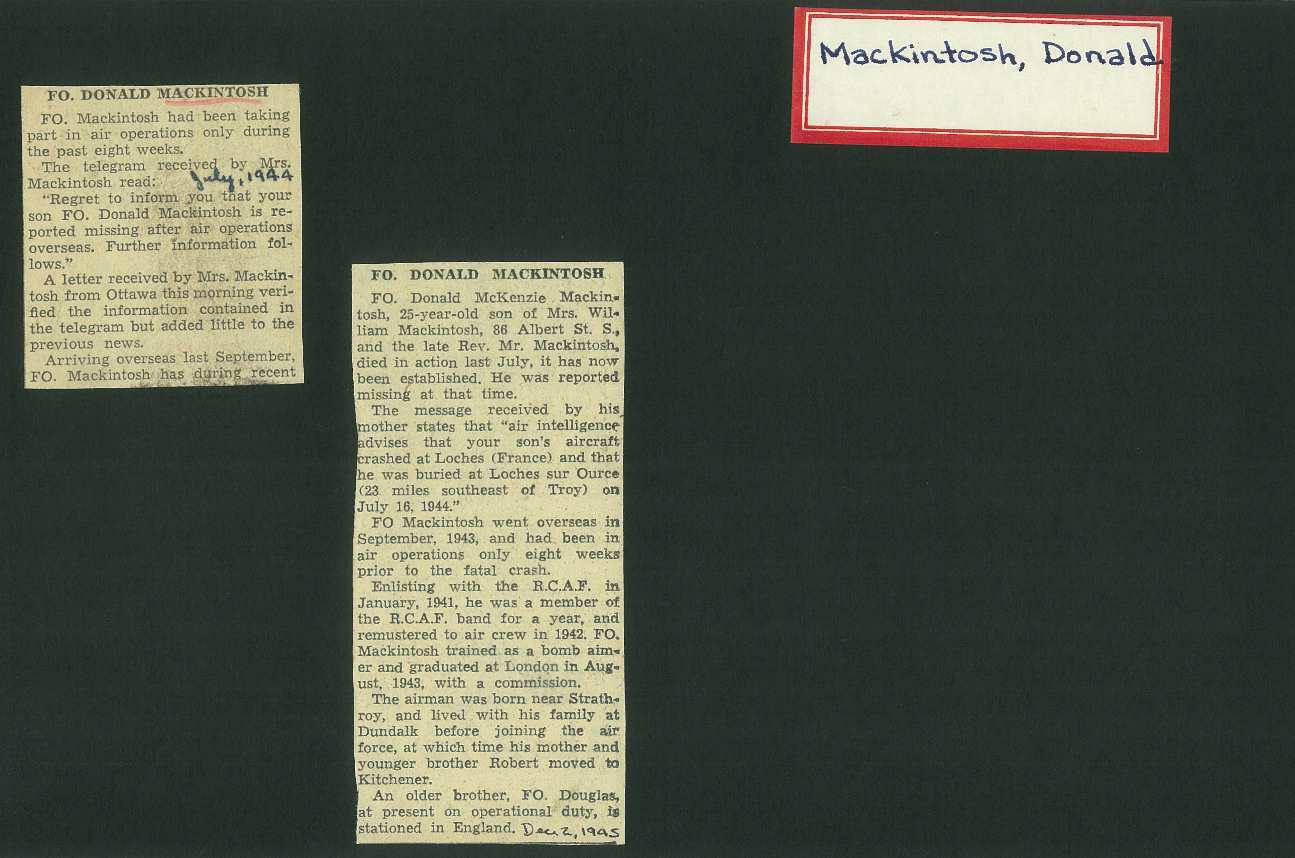 Mackintosh, Donald
FO. DONALD MACKINTOSH
FO. Mackintosh had been taking
part in air operations only during
the past eight weeks.
The telegram received by Mrs.
Mackintosh read:
July, 1944
"Regret to inform you that your
son FO. Donald Mackintosh is re-
ported missing after air operations
overseas. Further information fol-
lows."
A letter received by Mrs. Mackin-
tosh from Ottawa this morning veri-
fied the information contained in
the telegram but added little to the
previous news.
Arriving overseas last September,
FO. Mackintosh has during recent
FO. DONALD MACKINTOSH
FO. Donald McKenzie Mackin-
tosh, 25-year-old son of Mrs. Wil-
liam Mackintosh, 86 Albert St. S.,
and the late Rev. Mr. Mackintosh,
died in action last July, it has now
been established. He was reported
missing at that time.
The message received by his
mother states that "air intelligence
advises that your son's aircraft
crashed at Loches (France) and that
he was buried at Loches sur Ource
(23 miles southeast of Troy) on
July 16, 1944."
FO Mackintosh went overseas in
September, 1943, and had been in
air operations only eight weeks
prior to the fatal crash.
Enlisting with the R.C.A.F. in
January, 1941, he was a member of
the R.C.A.F. band for a year, and
remustered to air crew in 1942. FO.
Mackintosh trained as a bomb aim-
er and graduated at London in Aug-
ust, 1943, with a commission.
The airman was born near Strath-
roy, and lived with his family at
Dundalk before joining the air
force, at which time his mother and
younger brother Robert moved to
Kitchener.
An older brother, FO. Douglas,
at present on operational duty, is
stationed in England. Dec. 2, 1945